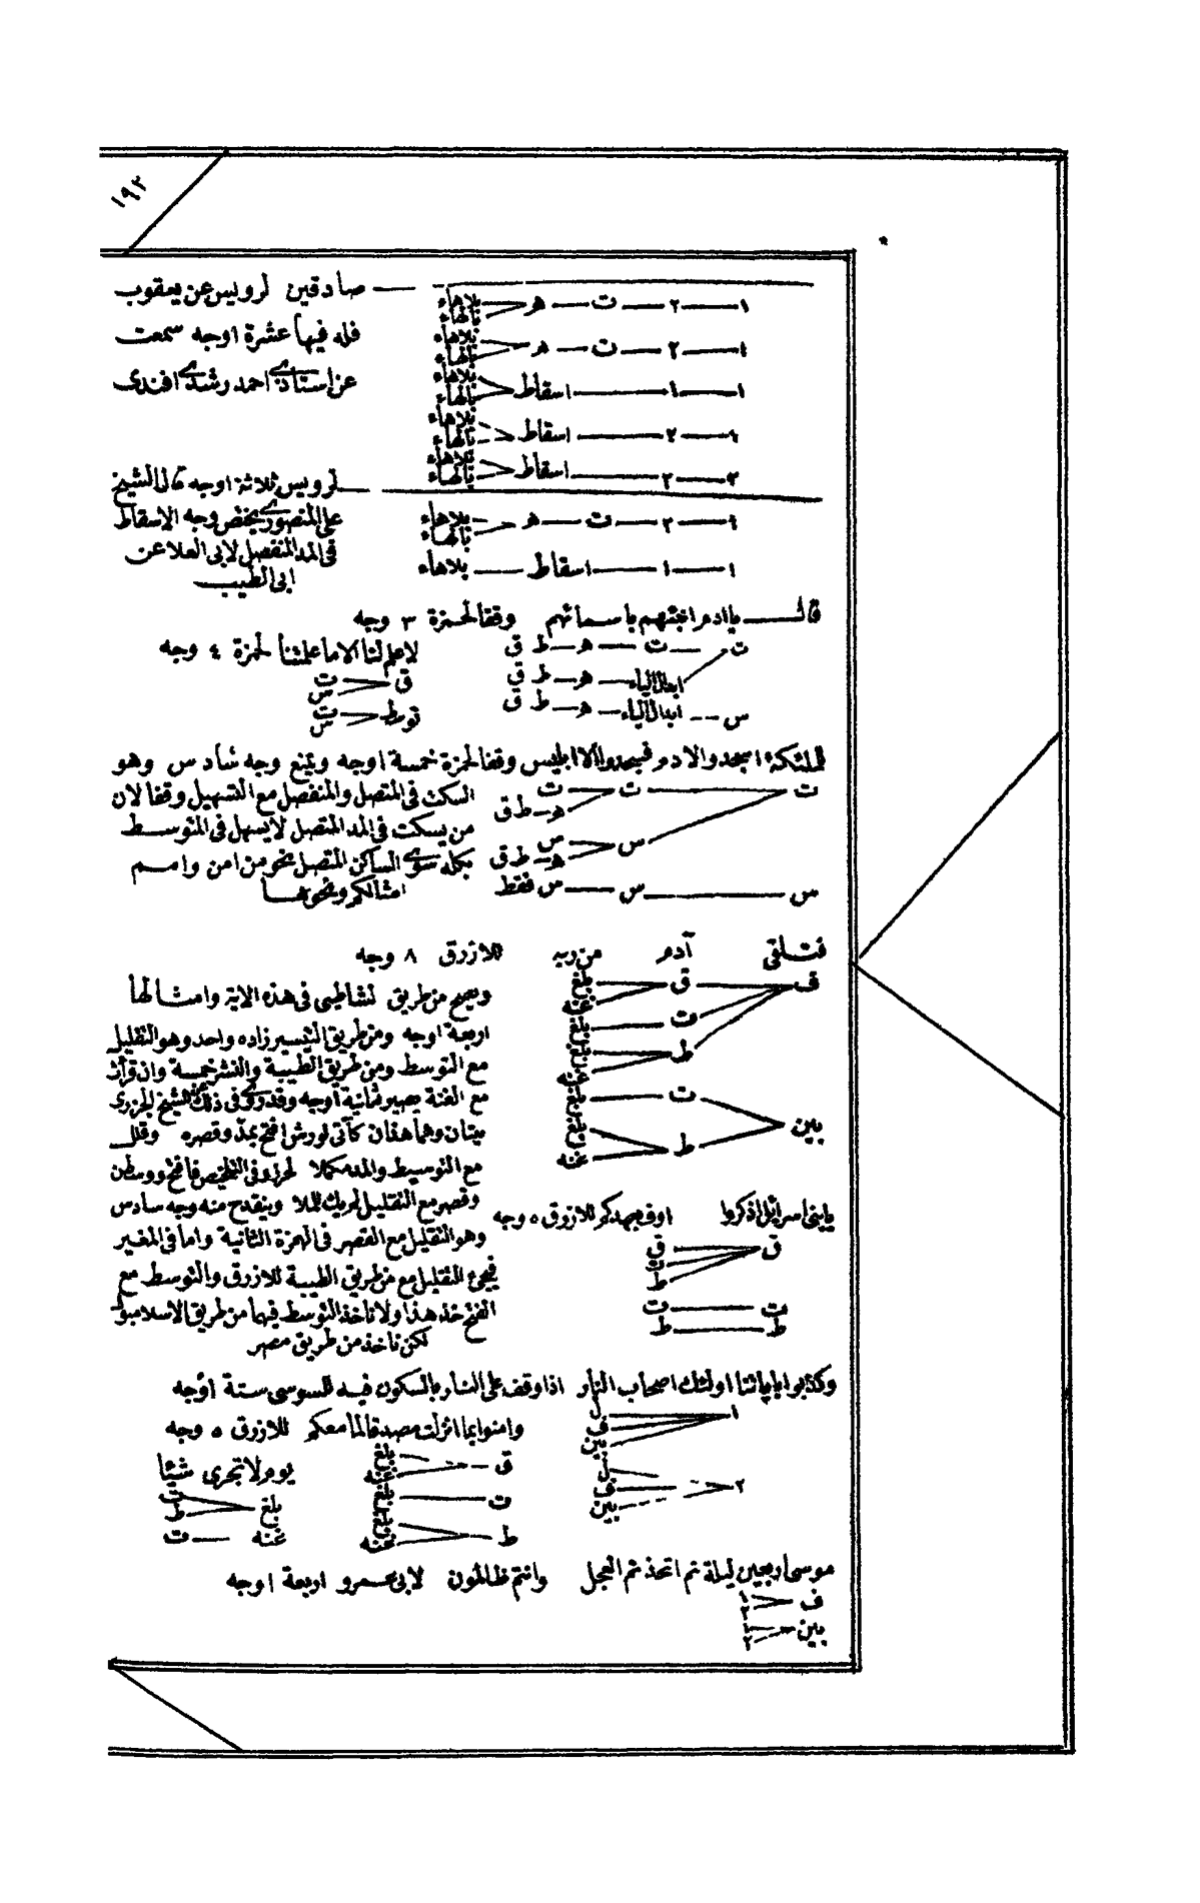 ١٩٢
صادقين لرويس عن يعقوب
١ — ٢ — ت — ه — بلاهاء
بالهاء
فله فيها عشرة اوجه سمعت
١ — ٢ — ت — ه — بلاهاء
بالهاء
عن استاذي احمد رشدي افندى
١ — ١ — اسقاط — بلاهاء
بالهاء
١ — ٢ — اسقاط — بلاهاء
بالهاء
٢ — ٢ — اسقاط — بلاهاء
بالهاء
لرويس ثلاثة اوجه قال الشيخ
على المنصوري يختص وجه الاسقاط
فى المد المنفصل لابى العلا عن
ابى الطيب
١ — ٢ — ت — ه — بلاهاء
بالهاء
١ — ١ — اسقاط — بلاهاء
قال يا ادم انبئهم باسمائهم وقفا لحمزة ٣ وجه
ت — ت — ه — ط ق
ابدال الياء — ه — ط ق
س — ابدال الياء — ه — ط ق
لا علم لنا الا ما علمتنا لحمزة ٤ وجه
ق ت
س
توسط ت
س
للملئكة اسجدوا لادم فسجدوا الا ابليس وقفا لحمزة خمسة اوجه ويمتنع وجه سادس وهو
السكت فى المتصل والمنفصل مع التسهيل وقفا لان
من يسكت فى المد المتصل لا يسهل فى المتوسط
بكلمه سوى الساكن المتصل نحو من امن واسم
امثالكم ونحوها
ت ت ت
ه ط ق
س س
ه ط ق
س — س — س فقط
فتلقى آدم من ربه للازرق ٨ وجه
ف ق بلغ
غنه
ت
ط
بين ت
ط
غنه
ويصح من طريق الشاطبى فى هذه الاية وامثالها
اربعة اوجه ومن طريق التيسير زاده واحد وهو التقليل
مع التوسط ومن طريق الطيبة والنشر خمسة وان قرأت
مع الغنة يصير ثمانية اوجه وقد روى فى ذلك الشيخ الجزرى
بيتان وهما هذان كآتى لورش افتح بمد وقصره وقلل
مع التوسيط والمد مكملا لحرز وفى التلخيص فافتح ووسطن
وقصر مع التقليل لم يك للملا وينقدح منه وجه سادس
وهو التقليل مع القصر فى الهمزة الثانية واما فى المغير
فيجئ التقليل مع من طريق الطيبة للازرق والتوسط مع
الفتح خذ هذا ولا ناخذ التوسط فيها من طريق الاسلامبول
لكن ناخذ من طريق مصر
يا بنى اسرائل اذكروا اوف بعهدكم للازرق ٥ وجه
ق ق
ت
ط
ت — ت
ط — ط
وكذبوا باياتنا اولئك اصحاب النار اذا وقف على النار بالسكون فيه للسوسى ستة اوجه
١ ل
ف
بين
٢ ل
ف
بين
وامنوا بما انزلت مصدقا لما معكم للازرق ٥ وجه
ق بلغ
غنه
ت — بلغ
ط بلغ
غنه
يوم لا تجزى شيئا
بلغ ت
ط
غنه — ت
موسى اربعين ليلة ثم اتخذتم العجل وانتم ظالمون لابى عمرو اربعة اوجه
ف ١
٢
بين ١
٢